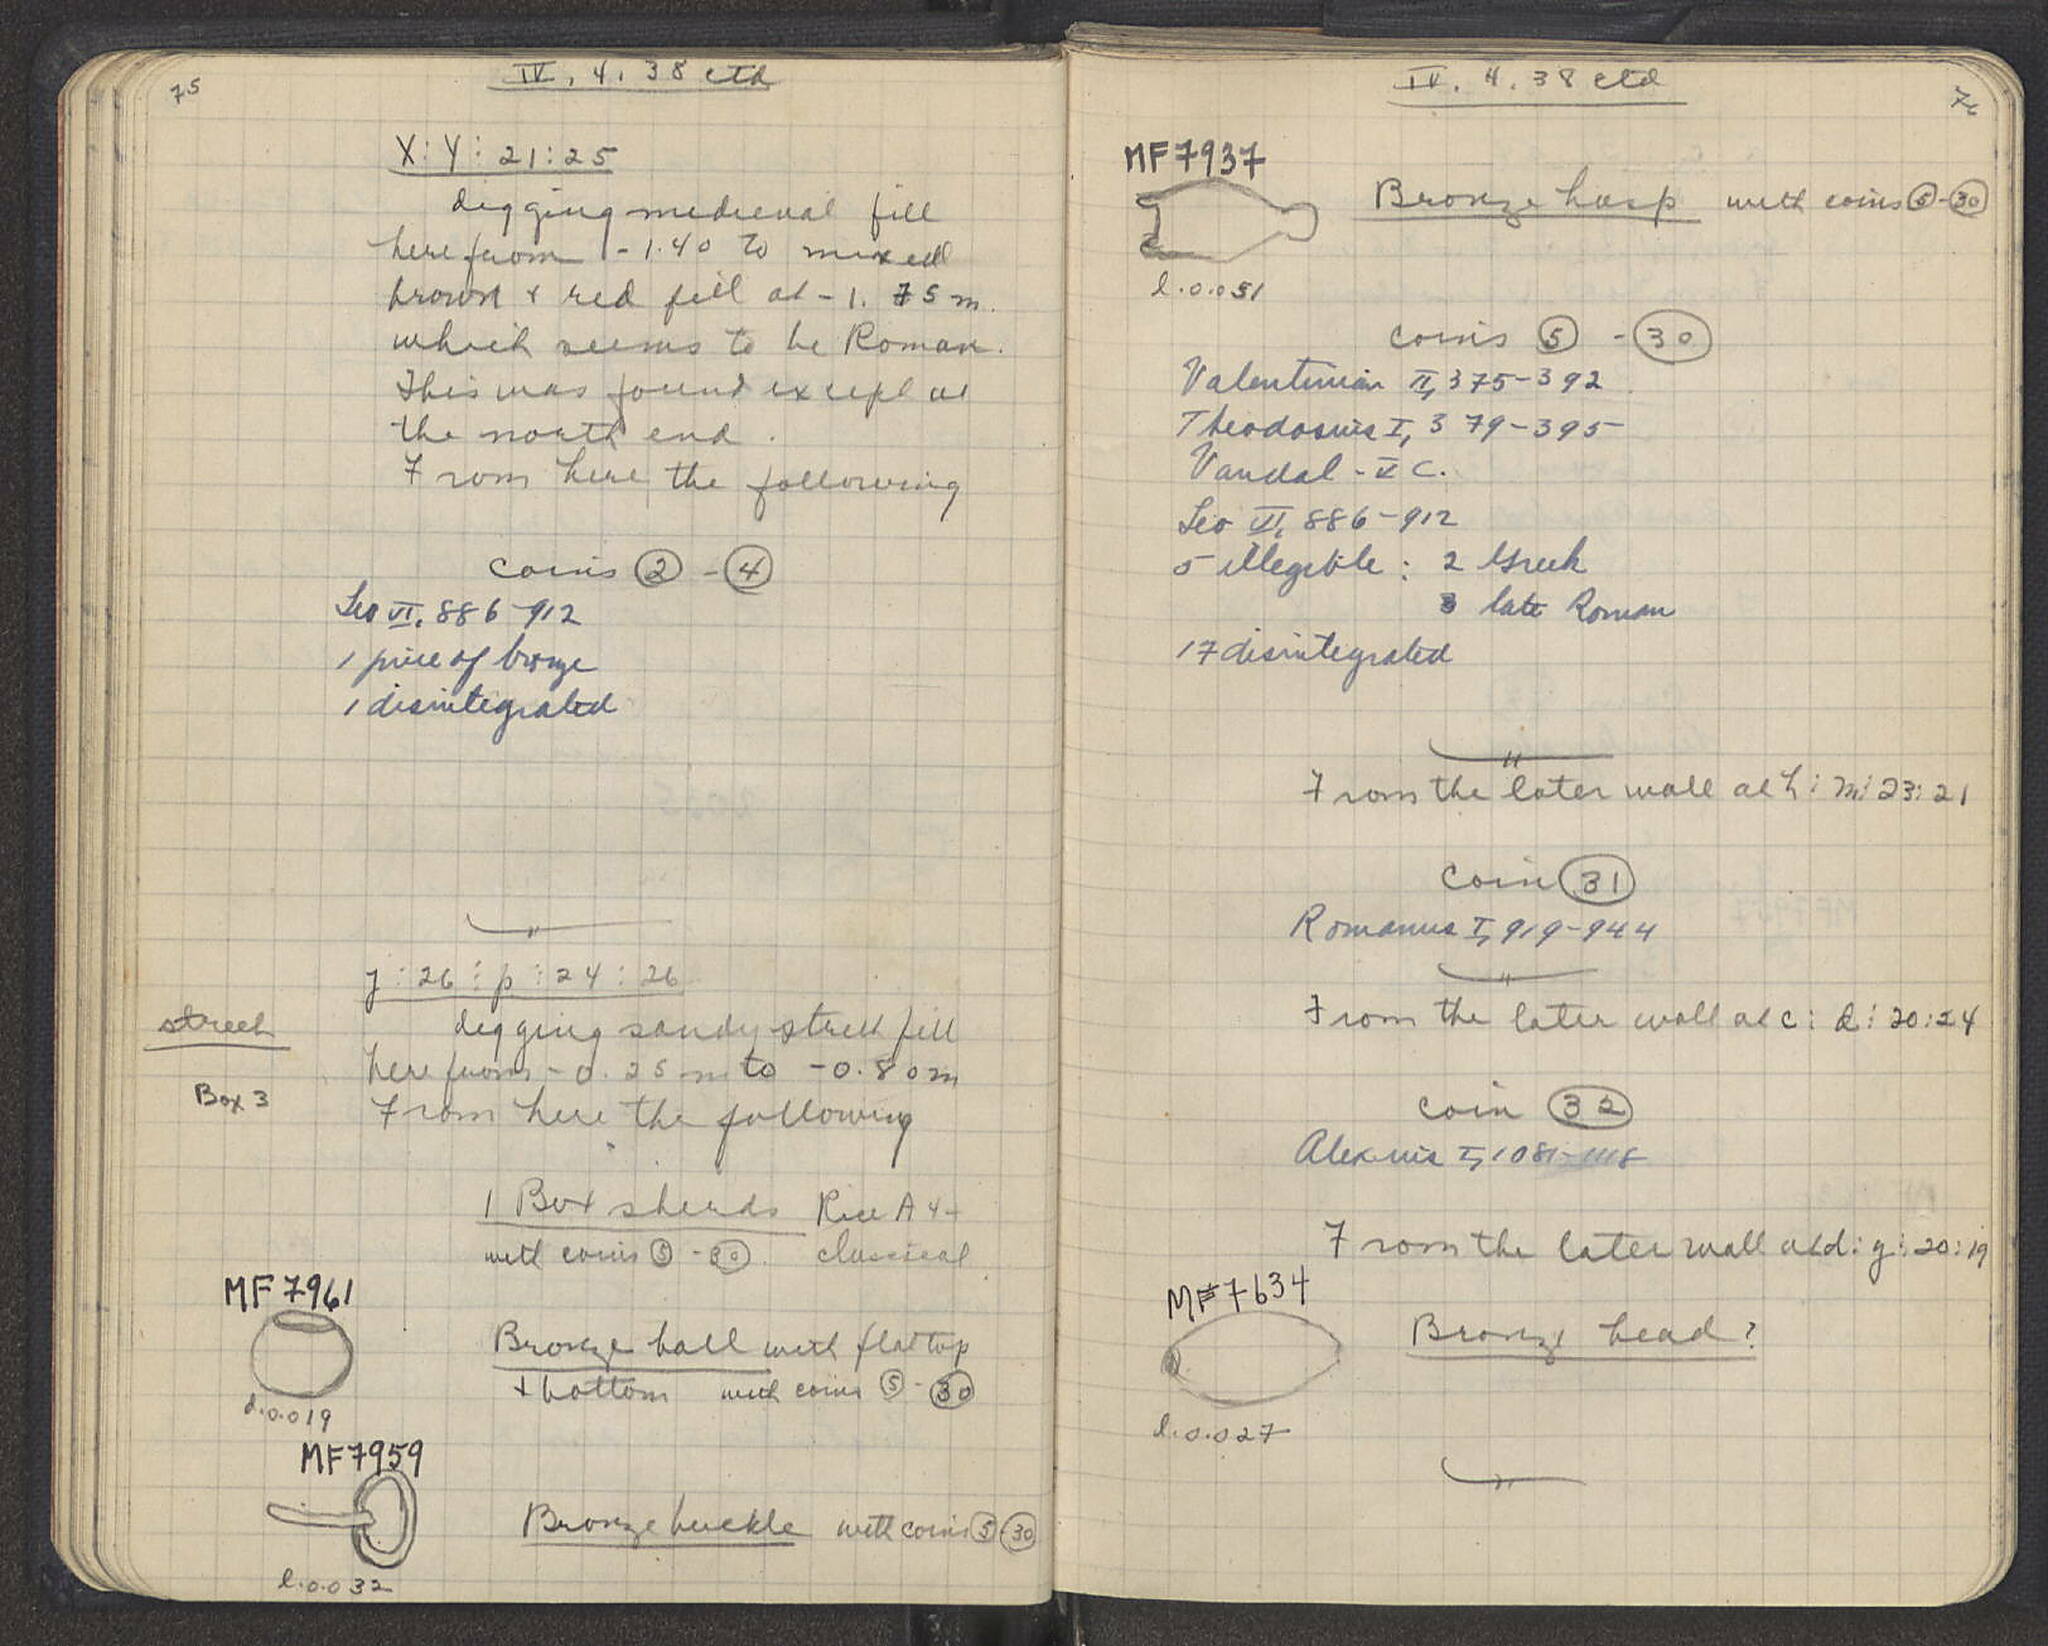 75
IV, 4, 38 ctd
X: Y: 21:25
digging medieval fill
here from -1.40 to mixed
brown + red fill at -1.75 m.
which seems to be Roman.
This was found except at
the north end.
From here the following
coins 2 - 4
Leo VI, 886-912
1 piece of bronze
1 disintegrated
"
j:26: p:24:26
street
digging sandy street fill
here from -0.25 m to -0.80 m
Box 3
From here the following
1 Box sherds
with coins 5 - 30. classical
MF 7961
Bronze ball with flat top
+ bottom with coins 5 - 30
d.0.019
MF7959
Bronze buckle with coins 5 - 30
l.0.032
IV. 4. 38 ctd
MF7937
Bronze hasp with coins 5 - 30
l.0.051
coins 5 - 30
Valentinian II, 375-392
Theodosius I, 379-395
Vandal - V C.
Leo VI, 886-912
5 illegible: 2 Greek
3 late Roman
17 disintegrated
"
From the later wall at h: m: 23:21
coin 31
Romanus I, 919-944
"
From the later wall at c: d: 20:24
coin 32
Alexius I, 1081-1118
From the later wall at d: g: 20:19
MF7634
Bronze bead?
l.0.027
"